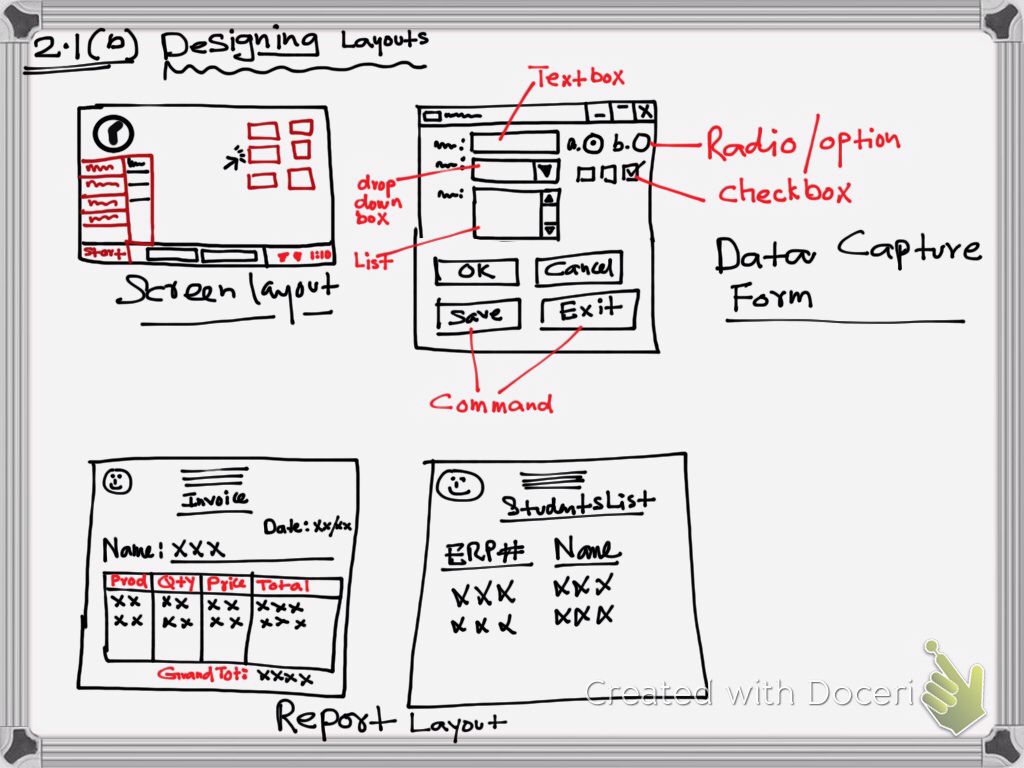 2.1(b) Designing Layouts
Start 1:10
Screen layout
Textbox
a. b.
Radio/option
checkbox
drop
down
box
List
X
OK Cancel
Save Exit
Command
Data Capture
Form
Invoice
Date: xx/xx
Name: XXX
Prod Qty Price Total
xx xx xx xxx
xx xx xx xxx
Grand Tot: xxxx
Students List
ERP# Name
XXX XXX
XXX XXX
Report Layout
Created with Doceri